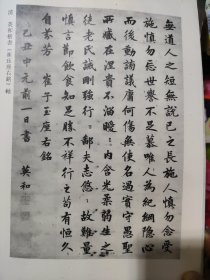 無道人之短無說己之長施人慎勿念受
施慎勿忘世譽不足慕唯仁為紀綱隱心
而後動謗議庸何傷無使名過實守愚聖
所臧在涅貴不淄曖曖內含光柔弱生之
徒老氏誡剛強行行鄙夫志悠悠故難量
慎言節飲食知足勝不祥行之苟有恒久
久自芬芳 崔子玉座右銘
己丑中元前一日書 英和